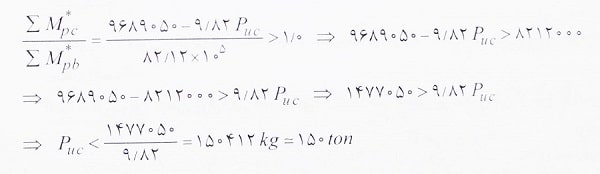 ∑M*pc / ∑M*pb = (۹۶۸۹۰۵۰ − ۹/۸۲ Puc) / (۸۲/۱۲×۱۰^۵) > ۱/۰ ⇒ ۹۶۸۹۰۵۰ − ۹/۸۲ Puc > ۸۲۱۲۰۰۰
⇒ ۹۶۸۹۰۵۰ − ۸۲۱۲۰۰۰ > ۹/۸۲ Puc ⇒ ۱۴۷۷۰۵۰ > ۹/۸۲ Puc
⇒ Puc < ۱۴۷۷۰۵۰ / ۹/۸۲ = ۱۵۰۴۱۲ kg = ۱۵۰ ton